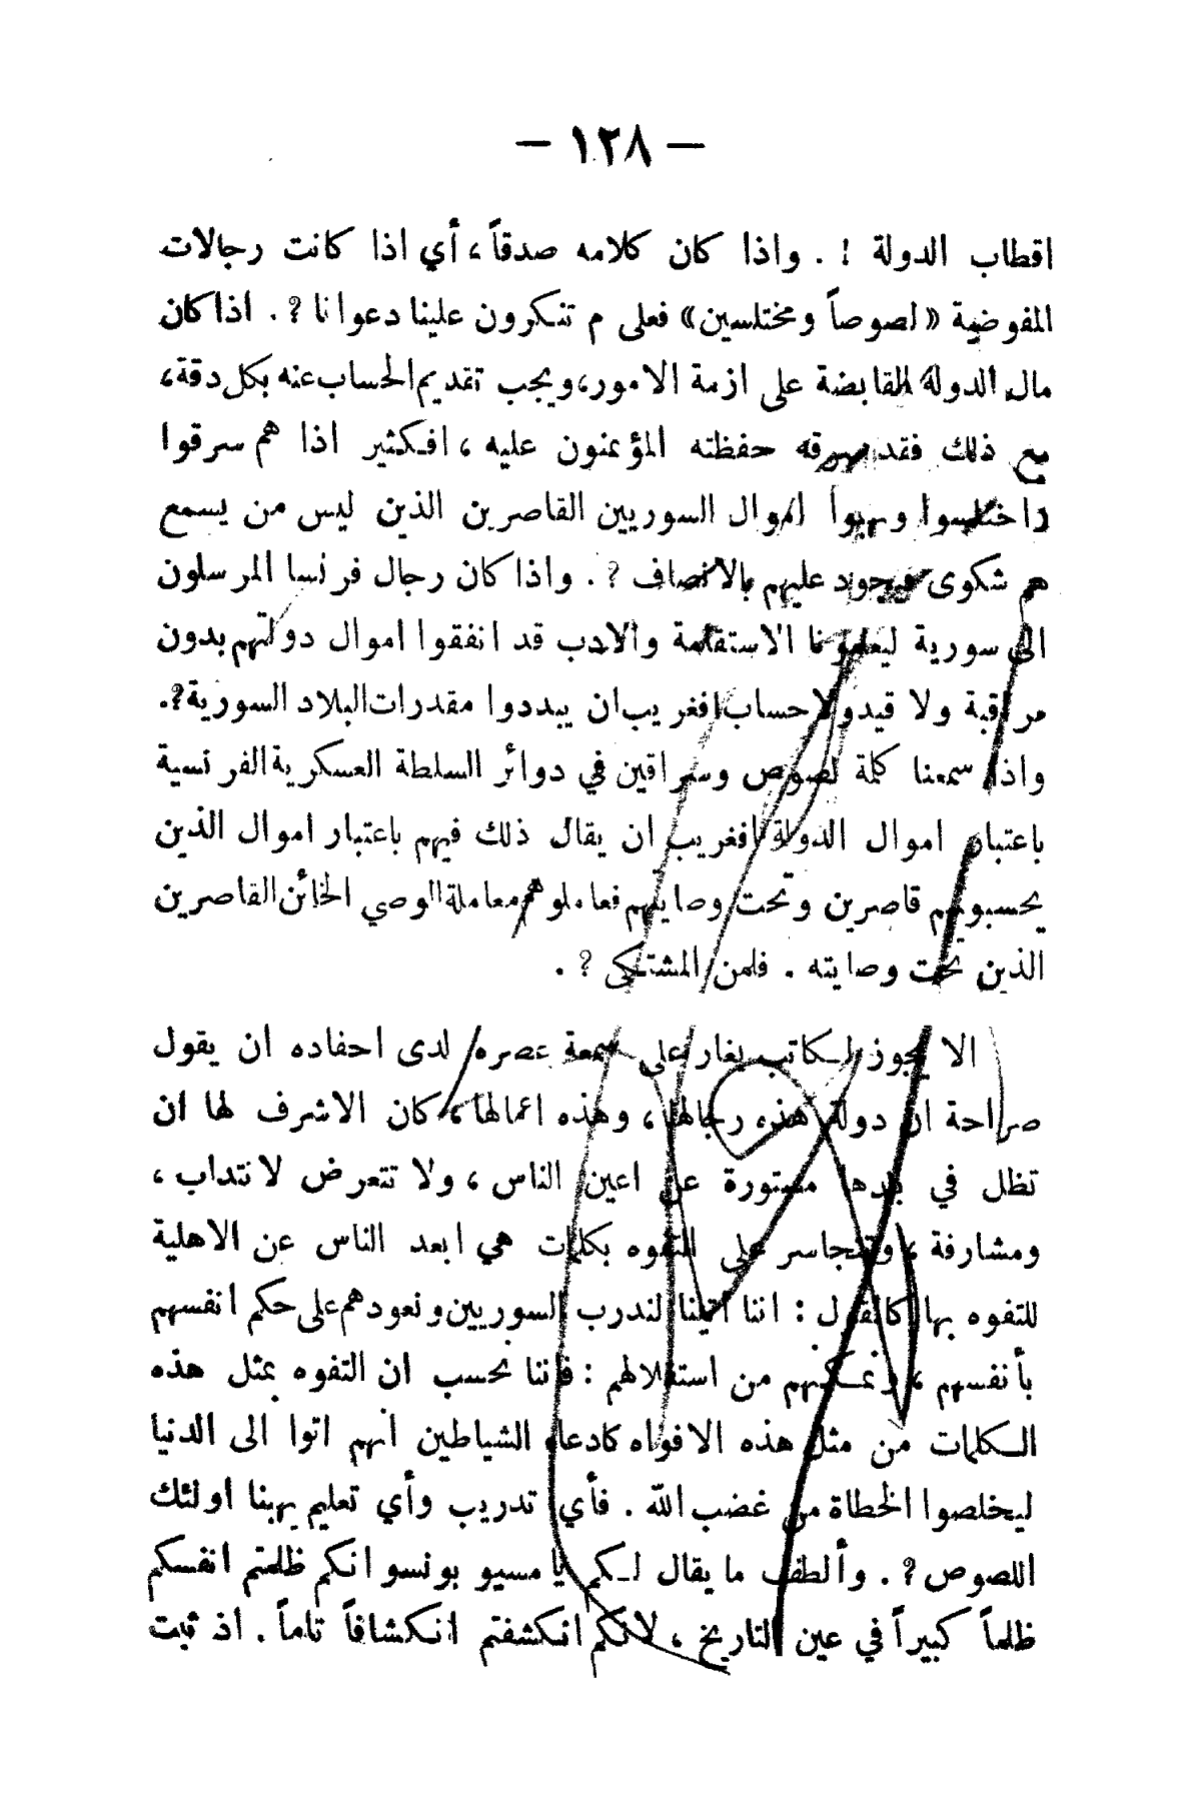 — ١٢٨ —
اقطاب الدولة ! . واذا كان كلامه صدقاً ، أي اذا كانت رجالات
المفوضية « لصوصاً ومختلسين » فعلى م تنكرون علينا دعوانا ? . اذا كان
مال الدولة القابضة على ازمة الامور ، ويجب تقديم الحساب عنه بكل دقة ،
مع ذلك فقد سرقه حفظته المؤتمنون عليه ، افكثير اذا هم سرقوا
واختلسوا ونهبوا اموال السوريين القاصرين الذين ليس من يسمع
هم شكوى ويجود عليهم بالانصاف ? . واذا كان رجال فرنسا المرسلون
الى سورية ليعلمونا الاستقامة والادب قد انفقوا اموال دولتهم بدون
مراقبة ولا قيد ولا حساب افغريب ان يبددوا مقدرات البلاد السورية ? .
واذا سمعنا كلمة لصوص وسراقين في دوائر السلطة العسكرية الفرنسية
باعتبار اموال الدولة افغريب ان يقال ذلك فيهم باعتبار اموال الذين
يحسبونهم قاصرين وتحت وصايتهم فعاملوهم معاملة الوصي الخائن القاصرين
الذين تحت وصايته . فلمن المشتكى ? .
الا يجوز لكاتب يغار على سمعة عصره لدى احفاده ان يقول
صراحة ان دولة هذه رجالها ، وهذه اعمالها ، كان الاشرف لها ان
تظل في بلدها مستورة عن اعين الناس ، ولا تتعرض لانتداب ،
ومشارفة ، وتتجاسر على التفوه بكلمات هي ابعد الناس عن الاهلية
للتفوه بها كالقول : اننا اتينا لندرب السوريين ونعودهم على حكم انفسهم
بأنفسهم ، ونمكنهم من استقلالهم : فاننا نحسب ان التفوه بمثل هذه
الكلمات من مثل هذه الافواه كادعاء الشياطين انهم اتوا الى الدنيا
ليخلصوا الخطاة من غضب الله . فأي تدريب وأي تعليم يهبنا اولئك
اللصوص ? . وألطف ما يقال لكم يا مسيو بونسو انكم ظلمتم انفسكم
ظلماً كبيراً في عين التاريخ ، لانكم انكشفتم انكشافاً تاماً . اذ ثبت